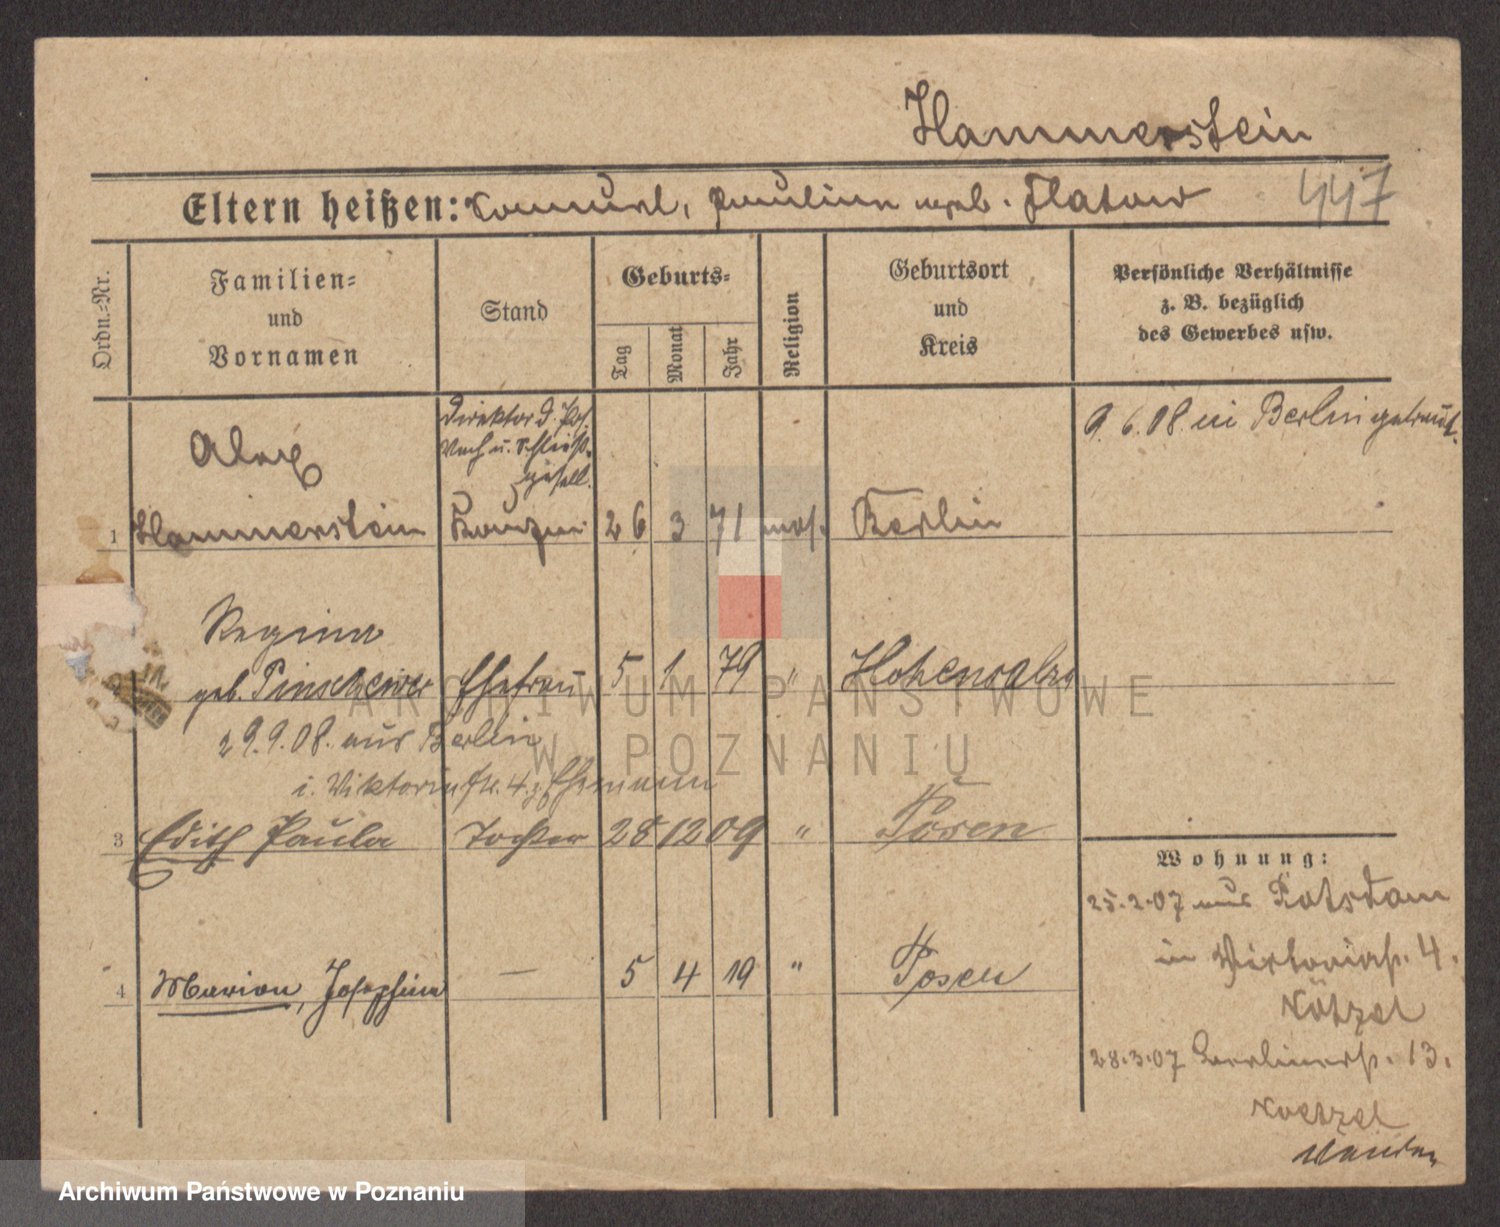 Hammerstein
Eltern heißen: Samuel, Pauline geb. Flatow 447
Ordn.-Nr.
Familien-
und
Vornamen
Stand
Geburts-
Tag
Monat
Jahr
Religion
Geburtsort
und
Kreis
Persönliche Verhältnisse
z. B. bezüglich
des Gewerbes usw.
Direktor d. Pos.
Wach u. Schließ-
gesell.
9. 6. 08. in Berlin getraut.
Alex
1 Hammerstein 26 3 71 mos. Berlin
Regina
geb. Ehefrau 5 1 79 " Hohensalza
29.9.08. aus Berlin
i. Viktoriastr. 4. z. Ehemann
3 Edith Paula Tochter 28 12 09 " Posen
Wohnung:
25.2.07 aus Potsdam
in Viktoriastr. 4.
Kötzel
4 Marion, Josephine — 5 4 19 " Posen
28.3.07 Berlinerstr. 13.
Koetzel
ARCHIWUM PAŃSTWOWE
W POZNANIU
Archiwum Państwowe w Poznaniu